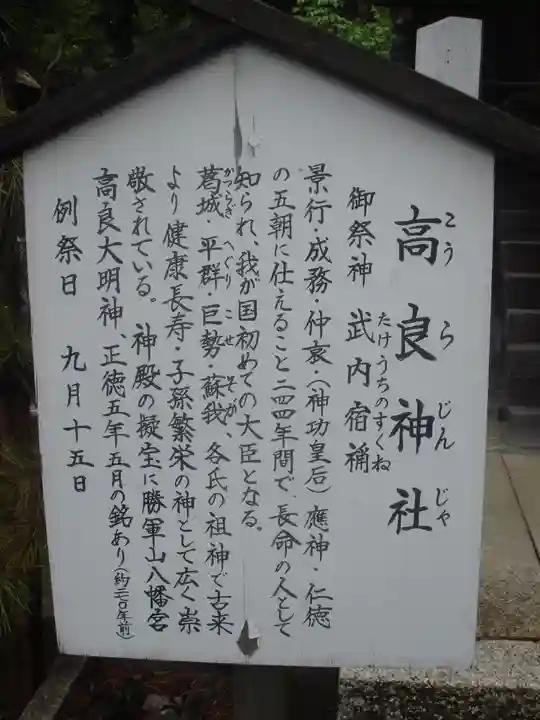 高良神社
こうらじんじゃ
御祭神 武内宿禰
たけうちのすくね
景行・成務・仲哀・(神功皇后)應神・仁徳
の五朝に仕えること二四四年間で、長命の人として
知られ、我が国初めての大臣となる。
葛城・平群・巨勢・蘇我、各氏の祖神で古来
かつらぎ へぐり こせ そが
より健康長寿・子孫繁栄の神として広く崇
敬されている。神殿の擬宝に勝軍山八幡宮
高良大明神、正徳五年五月の銘あり(約二七〇年前)
例祭日 九月十五日